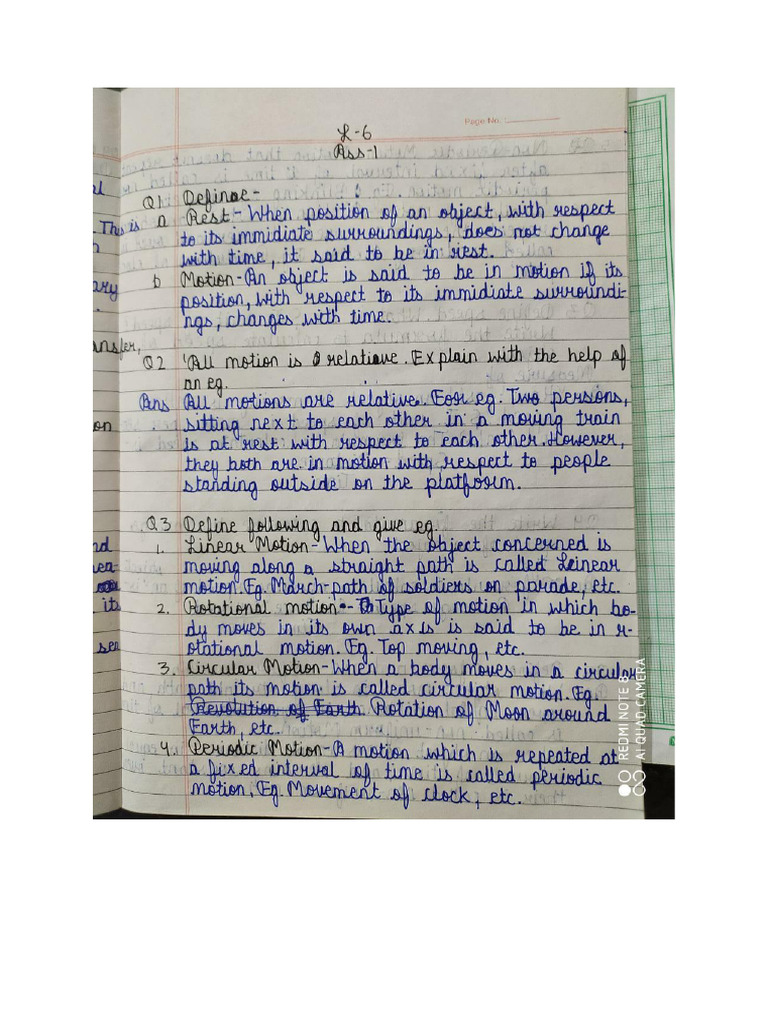 Page No.
L-6
Ass-1
Q1 Define -
a Rest - When position of an object, with respect
to its immidiate surroundings, does not change
with time, it said to be in rest.
b Motion - An object is said to be in motion if its
position, with respect to its immidiate surroundi-
ngs, changes with time.
Q2 'All motion is relative. Explain with the help of
an eg.
Ans All motions are relative. For eg. Two persons,
sitting next to each other in a moving train
is at rest with respect to each other. However,
they both are in motion with respect to people
standing outside on the platform.
Q3 Define following and give eg.
1. Linear Motion - When the object concerned is
moving along a straight path is called Linear
motion. Eg. March-path of soldiers on parade, etc.
2. Rotational motion - Type of motion in which bo-
dy moves in its own axis is said to be in r-
otational motion. Eg. Top moving, etc.
3. Circular Motion - When a body moves in a circular
path its motion is called circular motion. Eg.
Revolution of Earth Rotation of Moon around
Earth, etc.
4. Periodic Motion - A motion which is repeated at
a fixed interval of time is called periodic
motion. Eg. Movement of clock, etc.
This is
ary
nsfer,
on
nd
ea-
its
sen
REDMI NOTE 8
AI QUAD CAMERA